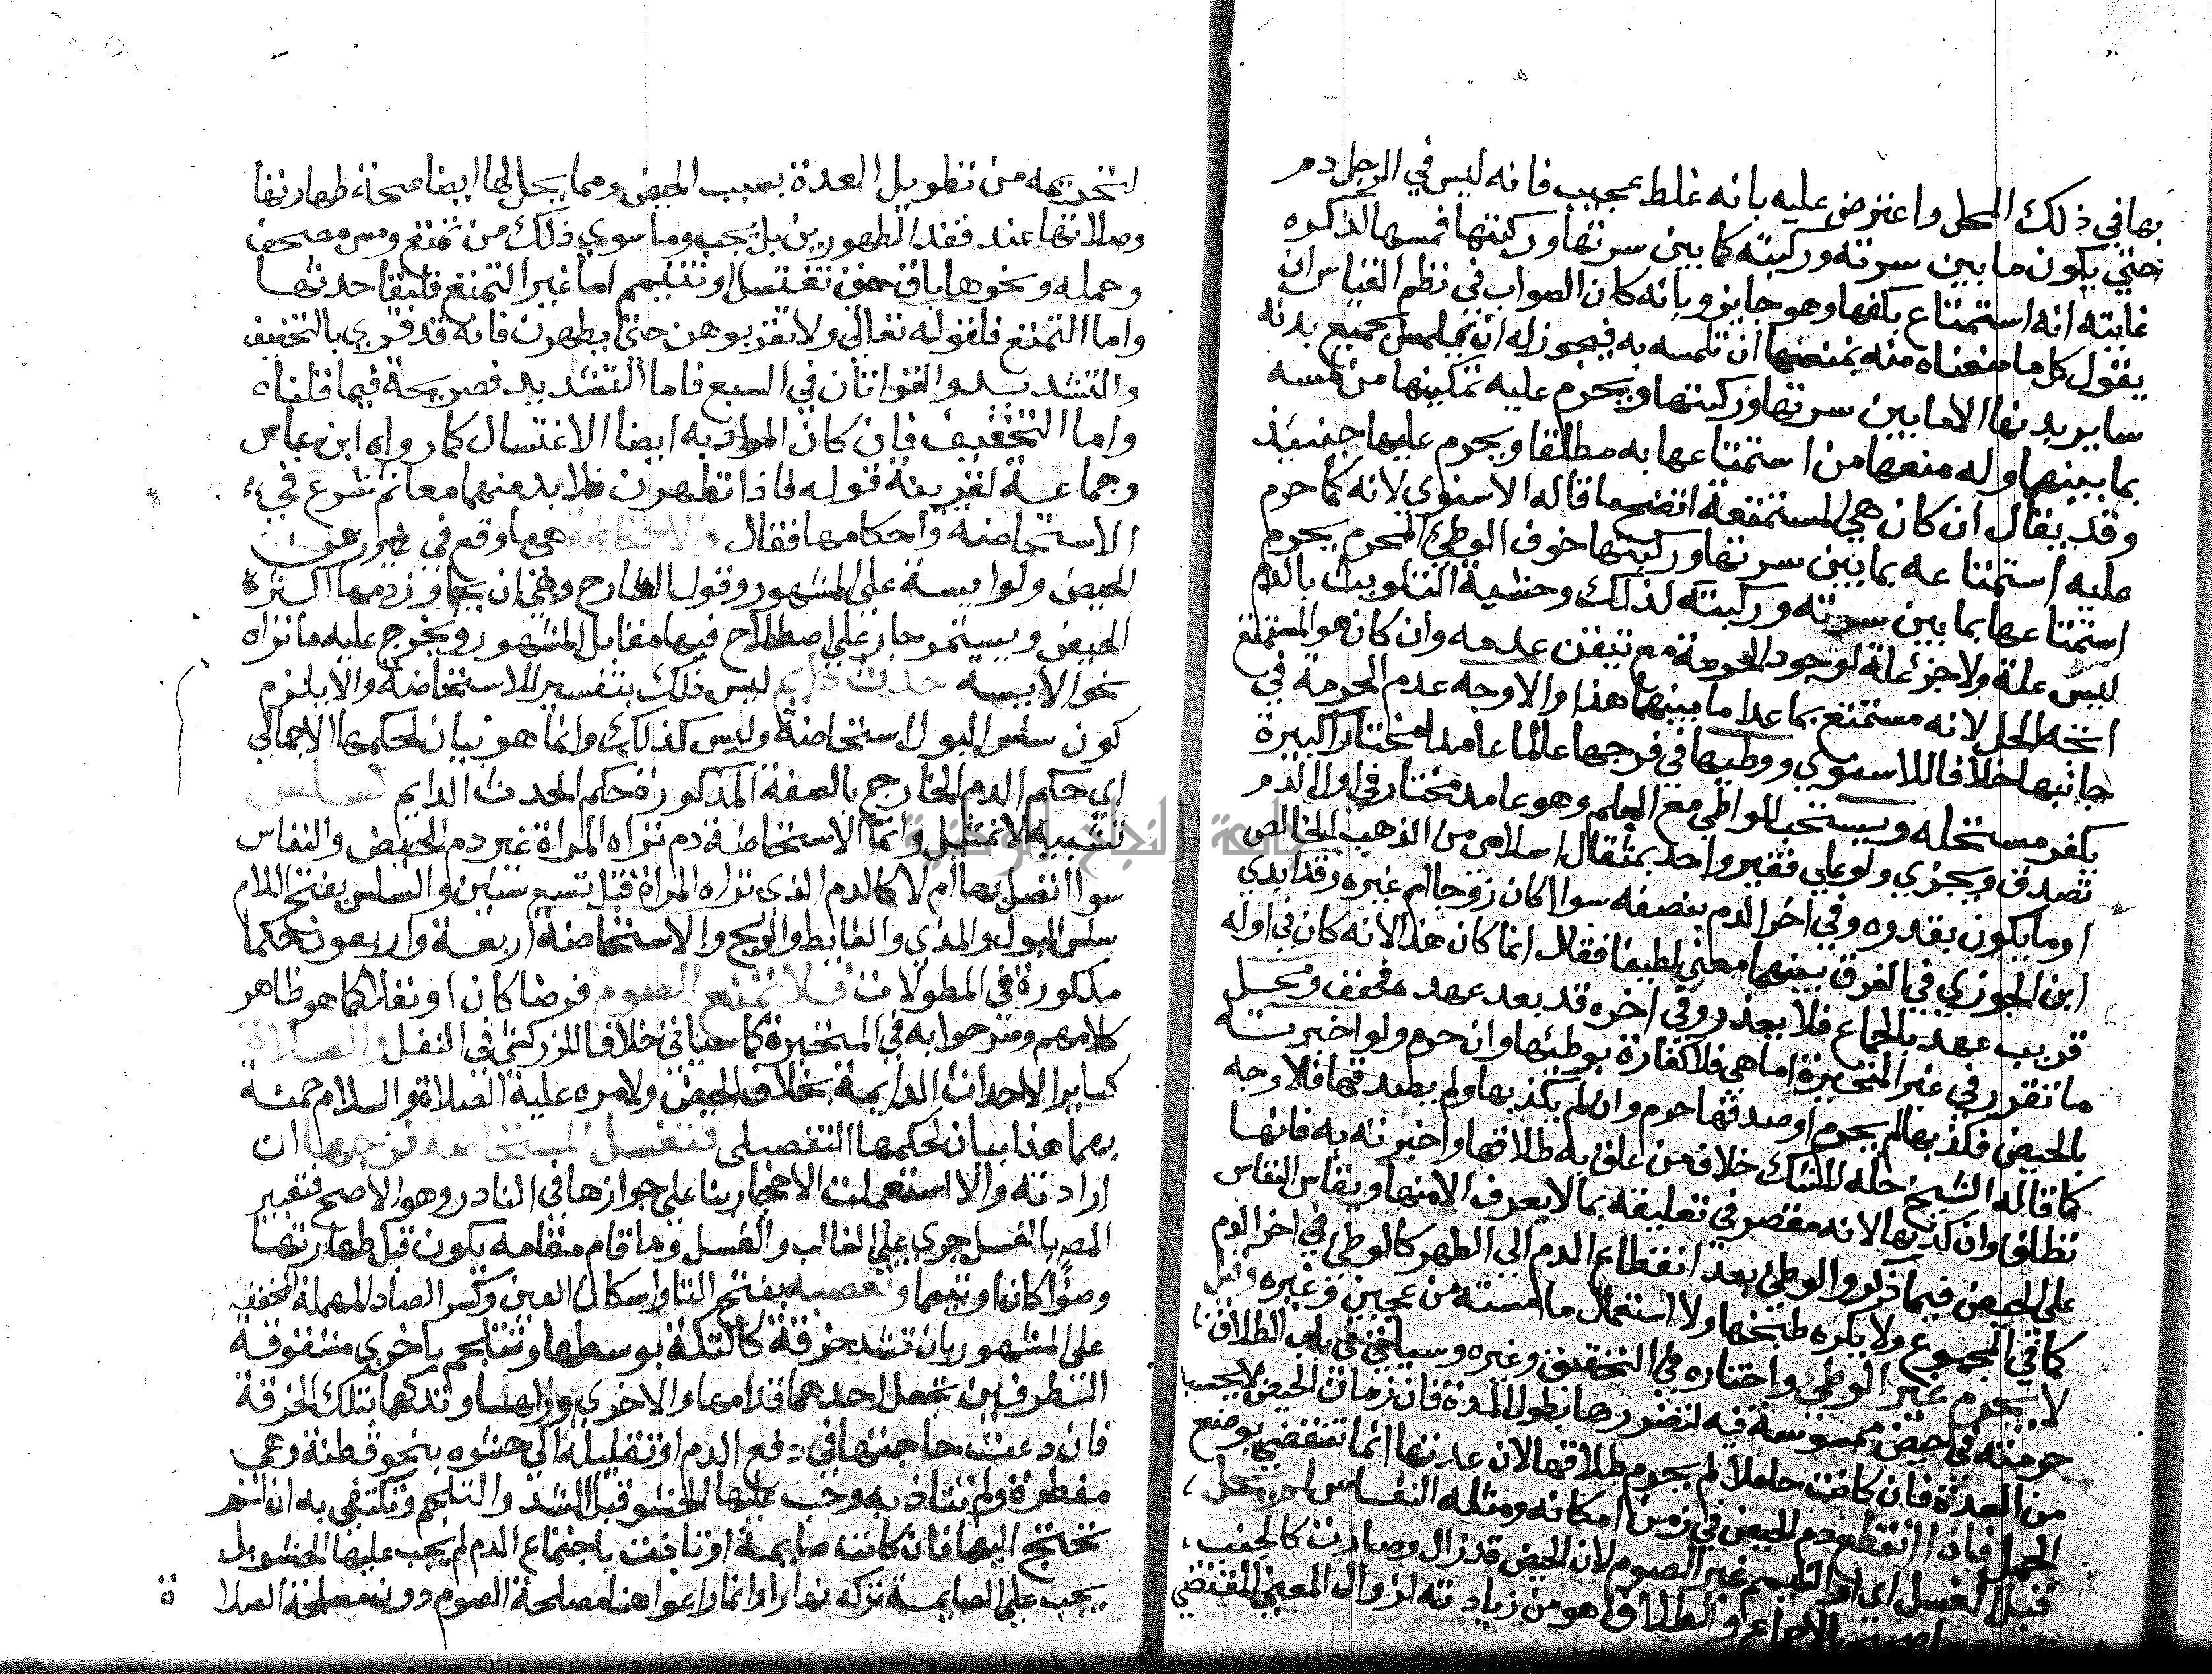 بها في ذلك المحل واعترض عليه بانه غلط عجيب فانه ليس في الرجل دم
حتى يكون ما بين سرته وركبته كما بين سرتها وركبتها فمسها لذكره
غايته انه استمتاع بكفها وهو جايز وبانه كان الصواب في نظم القياس ان
يقول كل ما منعناه منه نمنعها ان تلمسه به فيجوز له ان يلمس بجميع بدنه
ساير بدنها الا ما بين سرتها وركبتها ويحرم عليه تمكينها من لمسه
بما بينهما وله منعها من استمتاعها به مطلقا ويحرم عليها حينئذ
وقد يقال ان كان هي المستمتعة اتضح ما قاله الاسنوي لانه كما حرم
عليه استمتاعه بما بين سرتها وركبتها خوف الوطئ المحرم يحرم
استمتاعها بما بين سرته وركبته لذلك وخشية التلويث بالدم
ليس علة ولا جزء علة لوجود الحرمة مع تيقن عدمه وان كان هو المستمتع
اتجه الحل لانه مستمتع بما عدا ما بينهما هذا والاوجه عدم الحرمة في
جانبها خلافا للاسنوي ووطيها في فرجها عالما عامدا مختارا كبيرة
يكفر مستحله ويستحب للواطي مع العلم وهو عامد مختار في اول الدم
تصدق ويجزي ولو على فقير واحد بمثقال اسلامي من الذهب الخالص
او ما يكون بقدره وفي اخر الدم بنصفه سوا كان زوجا ام غيره وقد ابدى
ابن الجوزي في الفرق بينهما معنى لطيفا فقال انما كان هذا لانه كان في اوله
قريب عهد بالجماع فلا يعذر وفي اخره قد بعد عهده فخفف ومحل
ما تقرر في غير المتحيرة اما هي فلا كفارة بوطئها وان حرم ولو اخبرته
بالحيض فكذبها لم يحرم او صدقها حرم وان لم يكذبها ولم يصدقها فالاوجه
كما قاله الشيخ حله للشك خلاف من علق به طلاقها واخبرته به فانها
تطلق وان كذبها لانه مقصر في تعليقه بما لا يعرف الا منها ويقاس النفاس
على الحيض فيما ذكر والوطئ بعد انقطاع الدم الى الطهر كالوطئ في اخر الدم
كما في المجموع ولا يكره طبخها ولا استعمال ما مسته من عجين وغيره وقيل
لا يحرم غير الوطئ واختاره في التحقيق وغيره وسياتي في باب الطلاق
حرمته في حيض ممسوسة فيه لتضررها بطول المدة فان زمان الحيض لا يحسب
من العدة فان كانت حاملا لم يحرم طلاقها لان عدتها انما تنقضي بوضع
الحمل فاذا انقطع دم الحيض في زمن امكانه ومثله النفاس لم يحل
قبل الغسل اي او التيمم غير الصوم لان الحيض قد زال وصارت كالجنب
والطلاق هو من زيادته لزوال المعنى المقتضي
لتحريمه من تطويل العدة بسبب الحيض ومما يحل لها ايضا صحة طهارتها
وصلاتها عند فقد الطهورين بل يجب وما سوى ذلك من تمتع ومس مصحف
وحمله ونحوها باق حتى تغتسل او تتيمم اما غير التمتع فلبقا حدثها
واما التمتع فلقوله تعالى ولا تقربوهن حتى يطهرن فانه قد قري بالتخفيف
والتشديد والقراتان في السبع فاما التشديد فصريحة فيما قلناه
واما التخفيف فان كان المراد به ايضا الاغتسال كما رواه ابن عباس
وجماعة لقرينة قوله فاذا تطهرن فلا بد منهما معا ثم شرع في
الاستحاضة واحكامها فقال والاستحاضة هي ما وقع في غير زمن
الحيض ولو ايسة على المشهور وقول الشارح وهي ان يجاوز دمها اكثره
الحيض ويستمر جار على اصطلاح فيها مقابل المشهور ويخرج عليه ما تراه
نحو الايسة حدث دايم ليس ذلك بتفسير للاستحاضة والا يلزم
كون سلس البول استحاضة وليس كذلك وانما هو بيان لحكمها الاجمالي
اي حكم الدم الخارج بالصفة المذكورة حكم الحدث الدايم كسلس
تشبيه لا تمثيل وانما الاستحاضة دم تراه المراة غير دم الحيض والنفاس
سوا اتصل بهما ام لا كالدم الذي تراه المراة قبل تسع سنين والسلس بفتح اللام
سلس البول والمذي والغايط والريح والاستحاضة اربعة واربعون حكما
مذكورة في المطولات فلا تمنع الصوم فرضا كان او نفلا كما هو ظاهر
كلامهم وصرحوا به في المتحيرة كما سياتي خلافا للزركشي في النفل والصلاة
كساير الاحداث الدايمة بخلاف الحيض ولامره عليه الصلاة والسلام حمنة
بهما هذا بيان لحكمها التفصيلي فتغسل المستحاضة فرجها ان
ارادته والا استعملت الاحجار بنا على جوازها في النادر وهو الاصح فتعبير
المص بالغسل جري على الغالب والغسل وما قام مقامه يكون قبل طهارتها
وضوا كان او تيمما وتعصبه بفتح التا واسكان العين وكسر الصاد المهملة المخففة
على المشهور بان تشد خرقة كالتكة بوسطها وتتلجم باخرى مشقوقة
الطرفين تجعل احدهما قدامها والاخرى وراها وتشدهما بتلك الخرقة
فان دعت حاجتها في دفع الدم او تقليله الى حشوه بنحو قطنة وهي
مفطرة ولم تتاذ به وجب عليها الحشو قبل الشد والتلجم وتكتفي به ان لم
تحتج اليهما فان كانت صايمة او تاذت باجتماع الدم لم يجب عليها الحشو بل
يجب على الصايمة تركه نهارا وانما راعوا هنا مصلحة الصوم دون مصلحة الصلاة